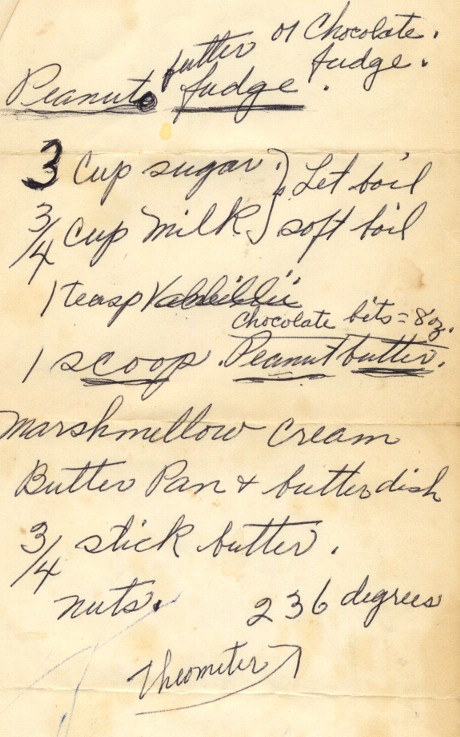 Peanuts butter or Chocolate.
fudge. fudge.
3 Cup sugar. } Let boil
3/4 Cup Milk } soft boil
1 teasp
Chocolate bits = 8 oz.
1 scoop. Peanut butter.
Marshmellow Cream
Butter Pan & butter dish
3/4 stick butter.
nuts. 236 degrees
Theometer